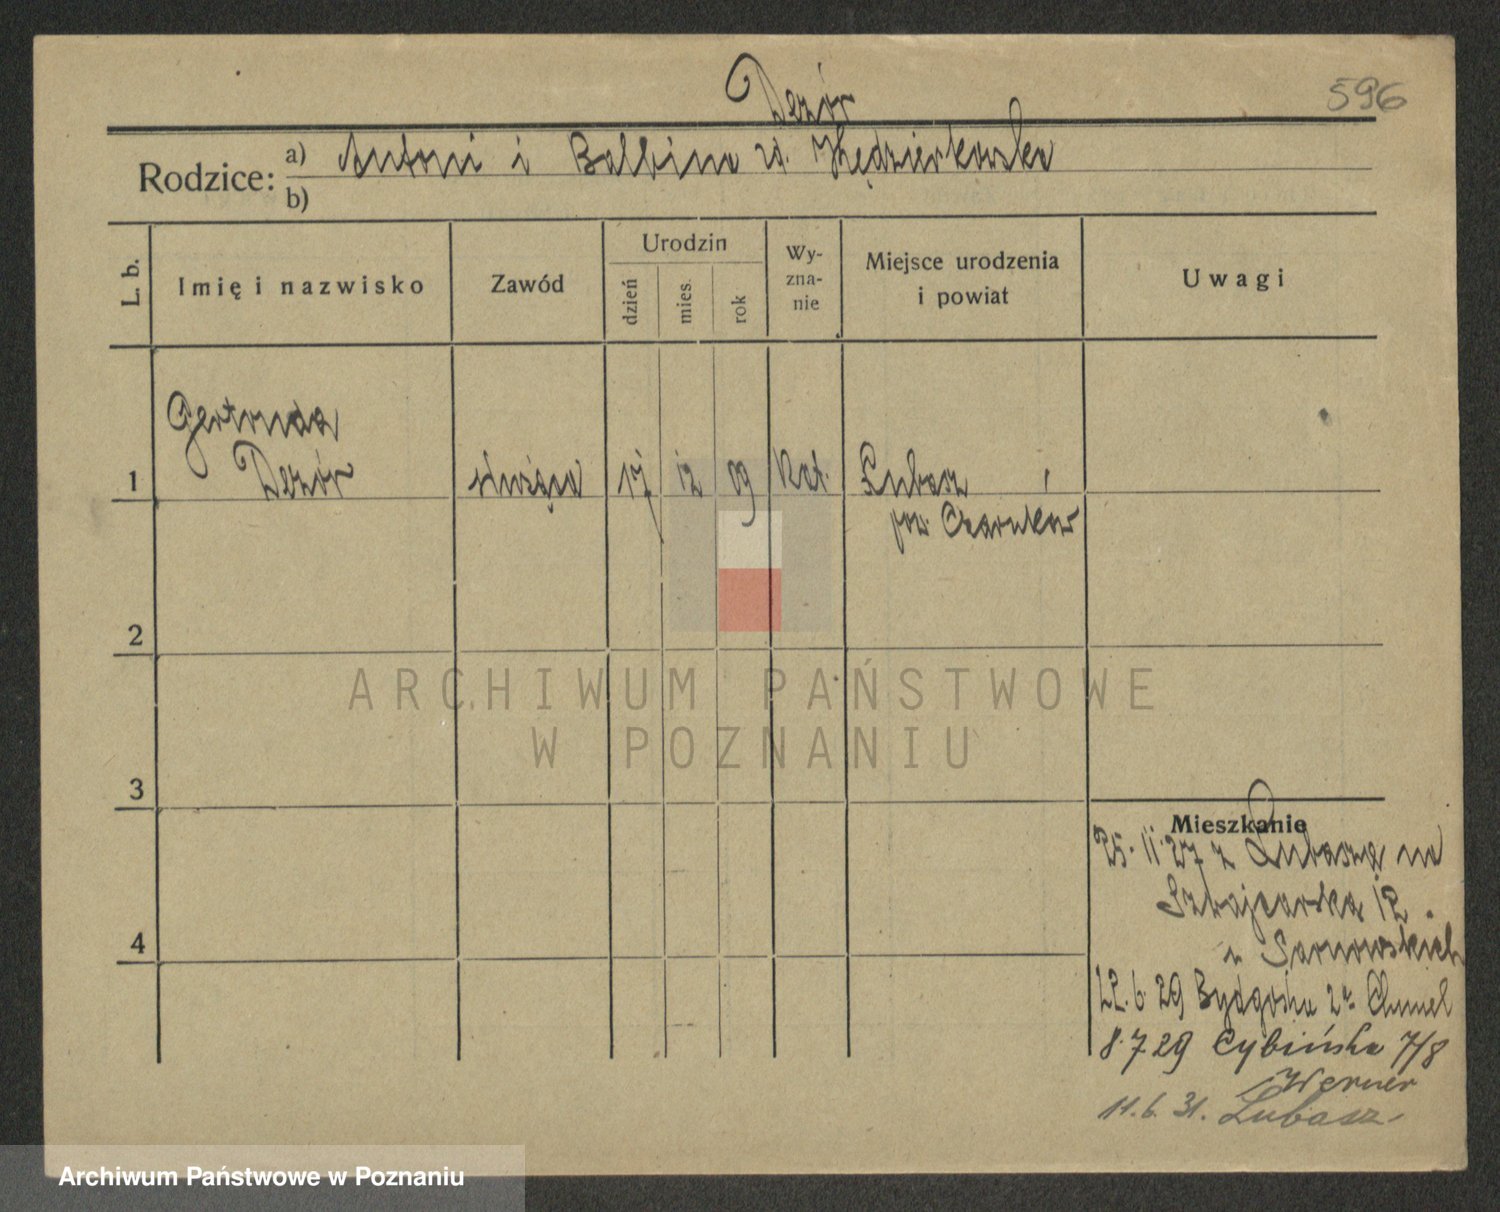 596
Dezór
Rodzice: a) Antoni i Balbina zd. Kędzierkowska
b)
L. b.
Imię i nazwisko
Zawód
Urodzin
dzień
mies.
rok
Wy-
zna-
nie
Miejsce urodzenia
i powiat
Uwagi
Gertruda
1 Dezór służąca 17 12 09 kat. Lubasz
pow. Czarnków
2
3
4
Mieszkanie
25.11.27 z Lubasza na
Szwajcarska 12.
u Sarnowskich
22.6.29 Bydgoska 2
8.7.29 Cybińska 7/8
Werner
11.6.31. Lubasz
ARCHIWUM PAŃSTWOWE
W POZNANIU
Archiwum Państwowe w Poznaniu